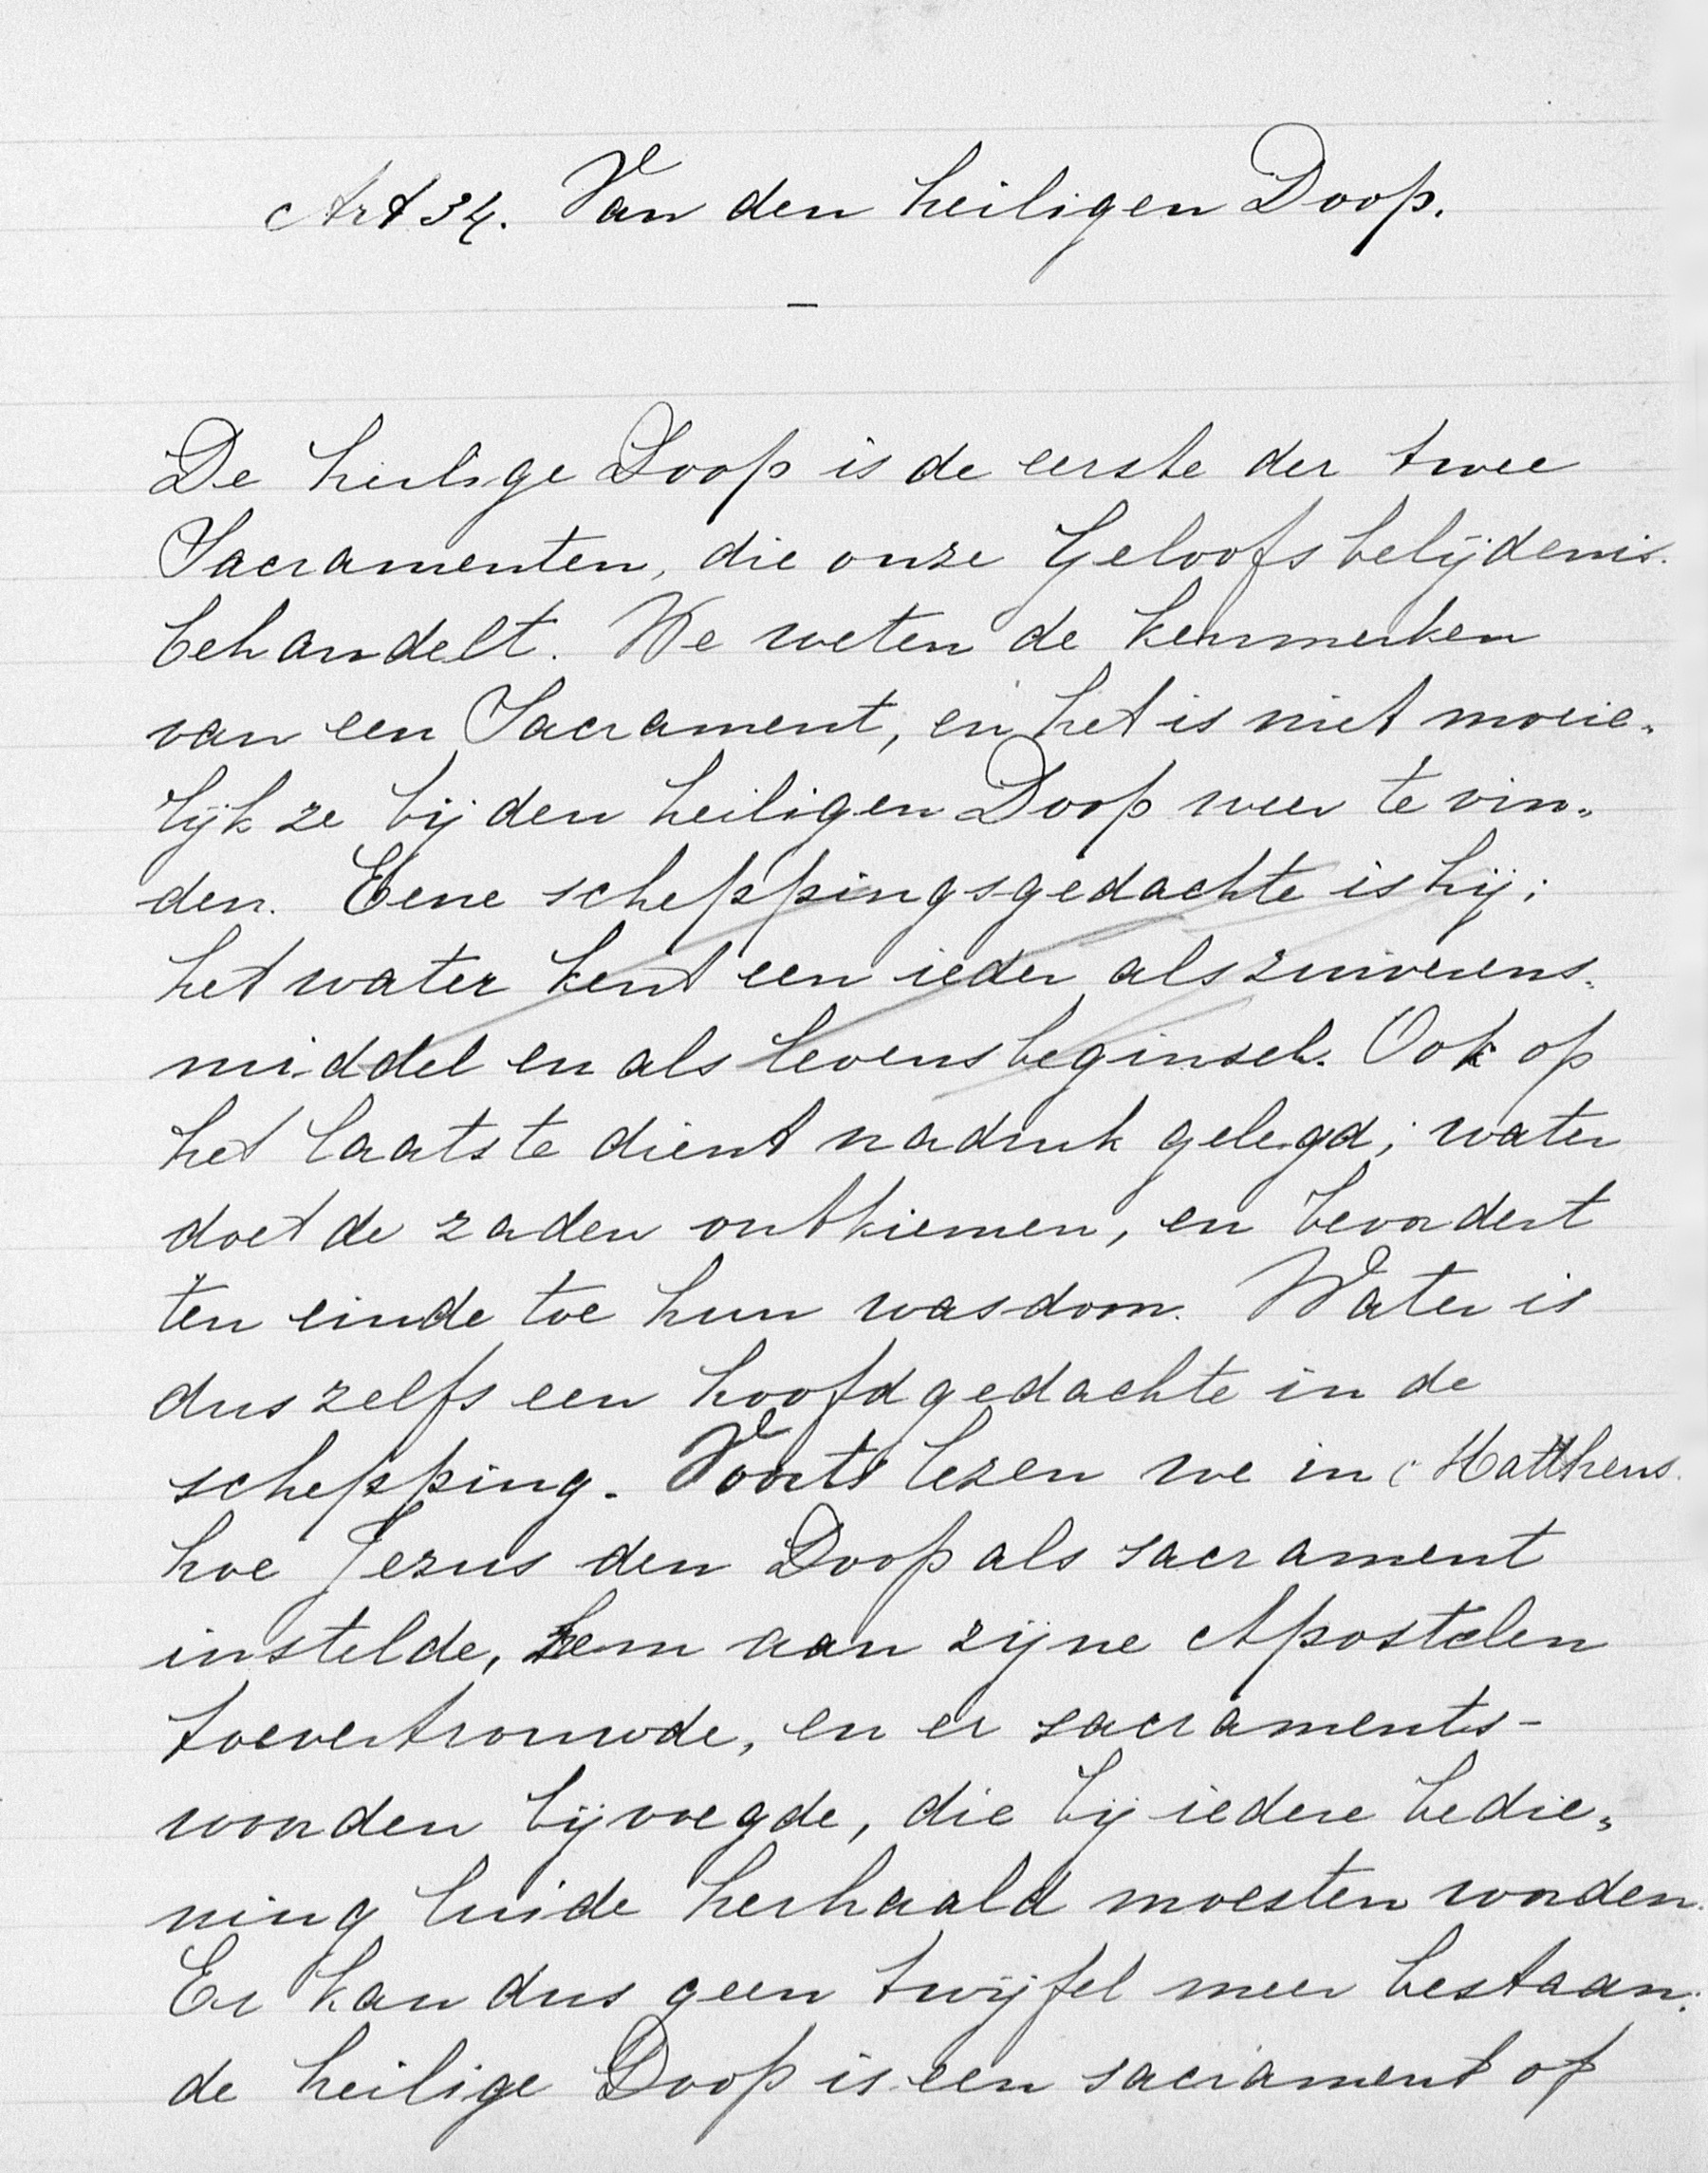 Art 34. Van den heiligen Doop.
—
De heilige Doop is de eerste der twee
Sacramenten, die onze Geloofsbelijdenis
behandelt. We weten de kenmerken
van een Sacrament, en het is niet moeie„
lijk ze bij den heiligen Doop weer te vin„
den. Eene scheppingsgedachte is hij;
het water kent een ieder als zuiverens„
middel en als levensbeginsel. Ook op
het laatste dient nadruk gelegd; water
doet de zaden ontkiemen, en bevordert
ten einde toe hun wasdom. Water is
dus zelfs een hoofdgedachte in de
schepping. Voorts lezen we in Mattheus
hoe Jezus den Doop als sacrament
instelde, hem aan zijne Apostelen
toevertrouwde, en er sacraments-
woorden bijvoegde, die bij iedere bedie„
ning luide herhaald moesten worden.
Er kan dus geen twijfel meer bestaan:
de heilige Doop is een sacrament op